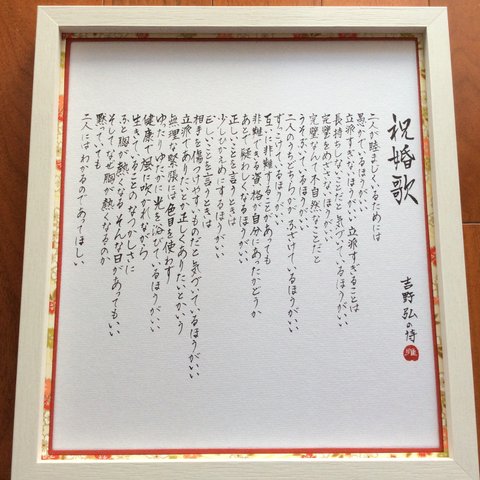 祝婚歌
吉野弘の詩
二人が睦まじくいるためには
愚かでいるほうがいい
立派すぎないほうがいい 立派すぎることは
長持ちしないことだと気づいているほうがいい
完璧をめざさないほうがいい
完璧なんて不自然なことだと
うそぶいているほうがいい
二人のうちどちらかが ふざけているほうがいい
ずっこけているほうがいい
互いに非難することがあっても
非難できる資格が自分にあったかどうか
あとで疑わしくなるほうがいい
正しいことを言うときは
少しひかえめにするほうがいい
正しいことを言うときは
相手を傷つけやすいものだと気づいているほうがいい
立派でありたいとか正しくありたいとかいう
無理な緊張には色目を使わず
ゆったりゆたかに光を浴びているほうがいい
健康で風に吹かれながら
生きていることのなつかしさに
ふと胸が熱くなる そんな日があってもいい
そしてなぜ胸が熱くなるのか
黙っていても
二人にはわかるのであってほしい